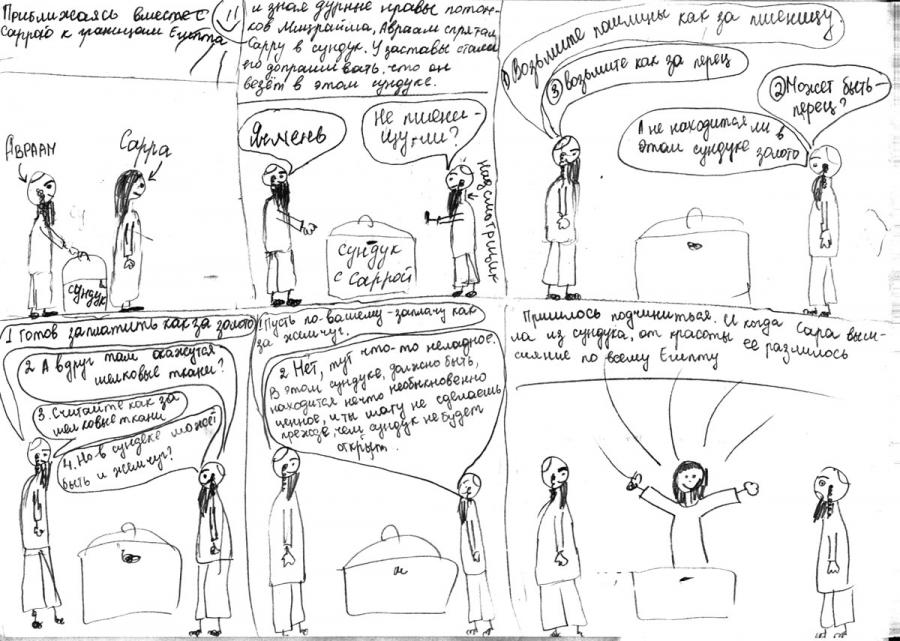 Приближаясь вместе с
Саррой к границам Египта
АВРААМ
Сарра
сундук
и зная дурные нравы потом-
ков Мицраима, Авраам спрятал
Сарру в сундук. У заставы стали
его допрашивать, что он
везёт в этом сундуке.
Ячмень
Не пшени-
цу-ли?
Надсмотрщик
сундук
с Саррой
1 Возьмите пошлины как за пшеницу.
2 Может быть-
перец?
3 возьмите как за перец
А не находится ли в
этом сундуке золото
1 Готов заплатить как за золото
2. А вдруг там окажутся
шелковые ткани?
3. Считайте как за
шелковые ткани
4. Но в сундеке может
быть и жемчуг?
1 Пусть по-вашему-заплачу как
за жемчуг.
2 Нет, тут что-то неладное.
В этом сундуке, должно быть,
находится нечто необыкновенно
ценное, и ты шагу не сделаешь
прежде, чем сундук не будет
открыт.
Пришлось подчиниться. И когда Сара выш-
ла из сундука, от красоты её разлилось
сияние по всему Египту